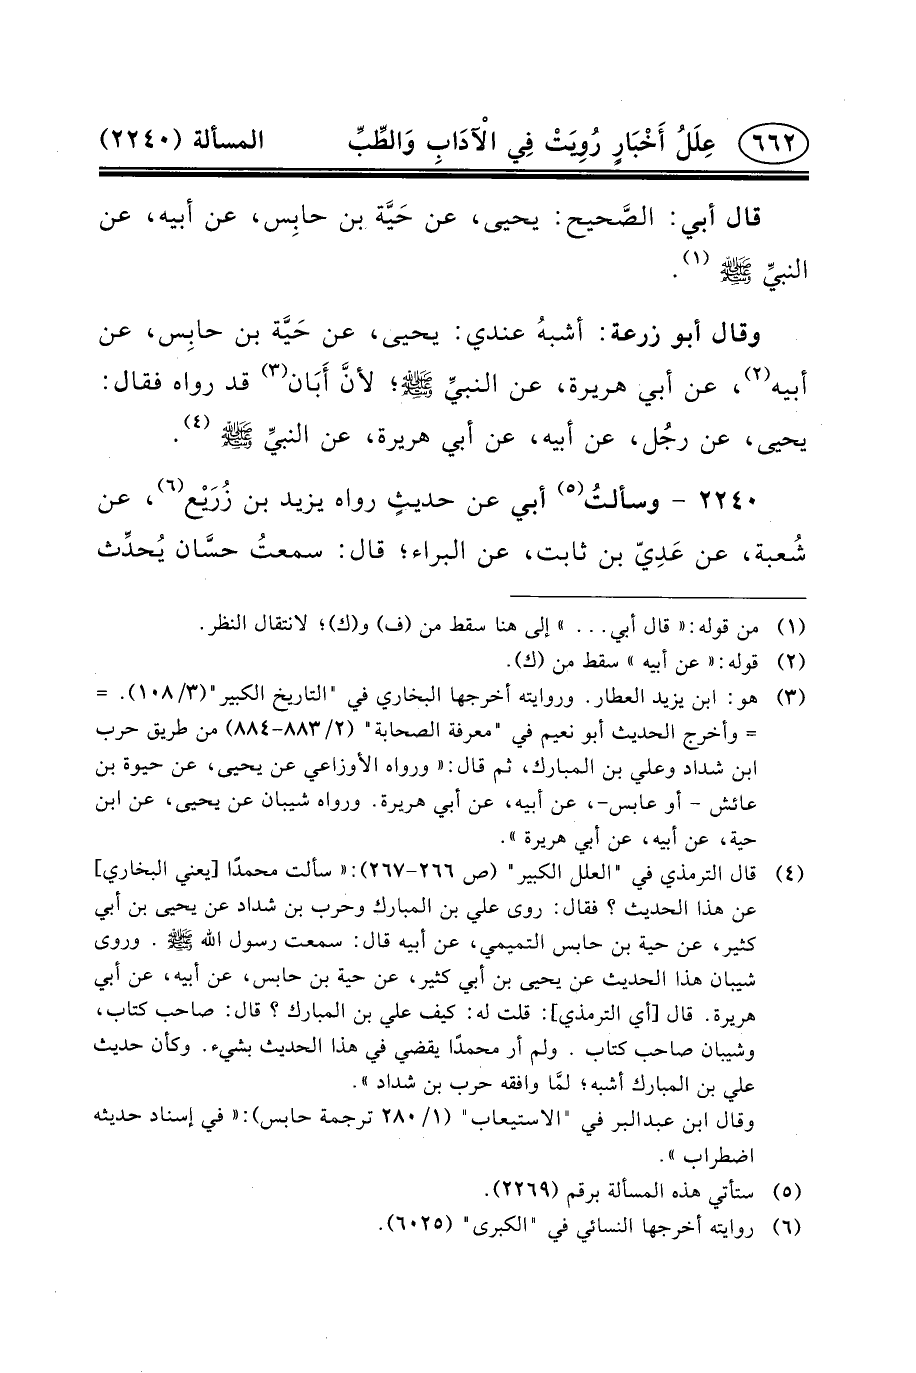 ٦٦٢ عِلَلُ أَخْبَارٍ رُوِيَتْ فِي الْآدَابِ وَالطِّبِّ المسألة (٢٢٤٠)
قال أبي: الصَّحيح: يحيى، عن حَيَّة بن حابِس، عن أبيه، عن
النبيِّ ﷺ (١).
وقال أبو زرعة: أشبهُ عندي: يحيى، عن حَيَّة بن حابِس، عن
أبيه(٢)، عن أبي هريرة، عن النبيِّ ﷺ؛ لأنَّ أَبَان(٣) قد رواه فقال:
يحيى، عن رجُل، عن أبيه، عن أبي هريرة، عن النبيِّ ﷺ (٤).
٢٢٤٠ - وسألتُ(٥) أبي عن حديثٍ رواه يزيد بن زُرَيْع(٦)، عن
شُعبة، عن عَدِيّ بن ثابت، عن البراء؛ قال: سمعتُ حسَّان يُحدِّث
(١) من قوله:« قال أبي... » إلى هنا سقط من (ف) و(ك)؛ لانتقال النظر.
(٢) قوله:« عن أبيه » سقط من (ك).
(٣) هو: ابن يزيد العطار. وروايته أخرجها البخاري في "التاريخ الكبير"(٣/ ١٠٨). =
= وأخرج الحديث أبو نعيم في "معرفة الصحابة" (٢/ ٨٨٣-٨٨٤) من طريق حرب
ابن شداد وعلي بن المبارك، ثم قال:« ورواه الأوزاعي عن يحيى، عن حيوة بن
عائش - أو عابس-، عن أبيه، عن أبي هريرة. ورواه شيبان عن يحيى، عن ابن
حية، عن أبيه، عن أبي هريرة ».
(٤) قال الترمذي في "العلل الكبير" (ص ٢٦٦-٢٦٧):« سألت محمدًا [يعني البخاري]
عن هذا الحديث ؟ فقال: روى علي بن المبارك وحرب بن شداد عن يحيى بن أبي
كثير، عن حية بن حابس التميمي، عن أبيه قال: سمعت رسول الله ﷺ . وروى
شيبان هذا الحديث عن يحيى بن أبي كثير، عن حية بن حابس، عن أبيه، عن أبي
هريرة. قال [أي الترمذي]: قلت له: كيف علي بن المبارك ؟ قال: صاحب كتاب،
وشيبان صاحب كتاب . ولم أر محمدًا يقضي في هذا الحديث بشيء. وكأن حديث
علي بن المبارك أشبه؛ لمَّا وافقه حرب بن شداد ».
وقال ابن عبدالبر في "الاستيعاب" (١/ ٢٨٠ ترجمة حابس):« في إسناد حديثه
اضطراب ».
(٥) ستأتي هذه المسألة برقم (٢٢٦٩).
(٦) روايته أخرجها النسائي في "الكبرى" (٦٠٢٥).